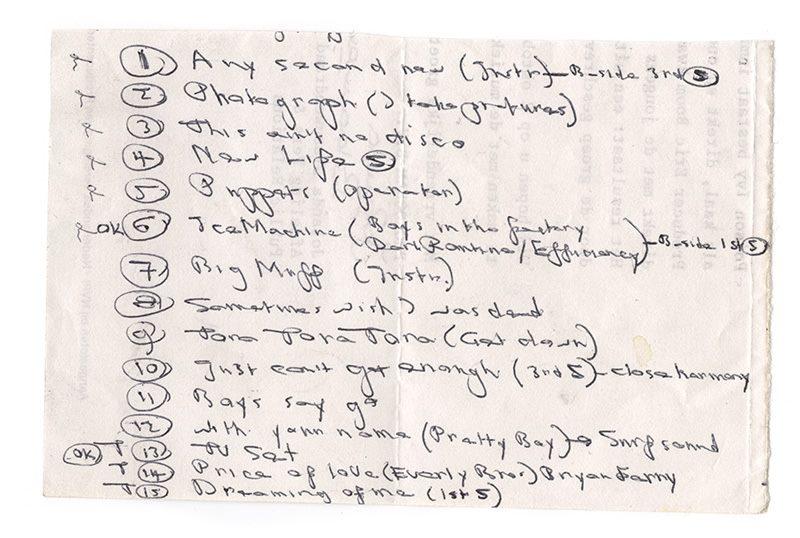 1 Any second now (Instr) - B-side 3rd S
2 Photograph (I take pictures)
3 This ain't no disco
4 New Life S
5 Puppets (operator)
OK 6 Ice Machine (Boys in the factory
Dark Routine / Efficiency) - B-side 1st S
7 Big Muff (Instr.)
8 Sometimes wish I was dead
9 Tora Tora Tora (Get down)
10 Just can't get enough (3rd S) - close harmony
11 Boys say go
12 with your name (Pretty Boy) → Surfsound
OK T 13 TV Set
T 14 Price of love (Everly Bros) Bryan Ferry
T 15 Dreaming of me (1st S)